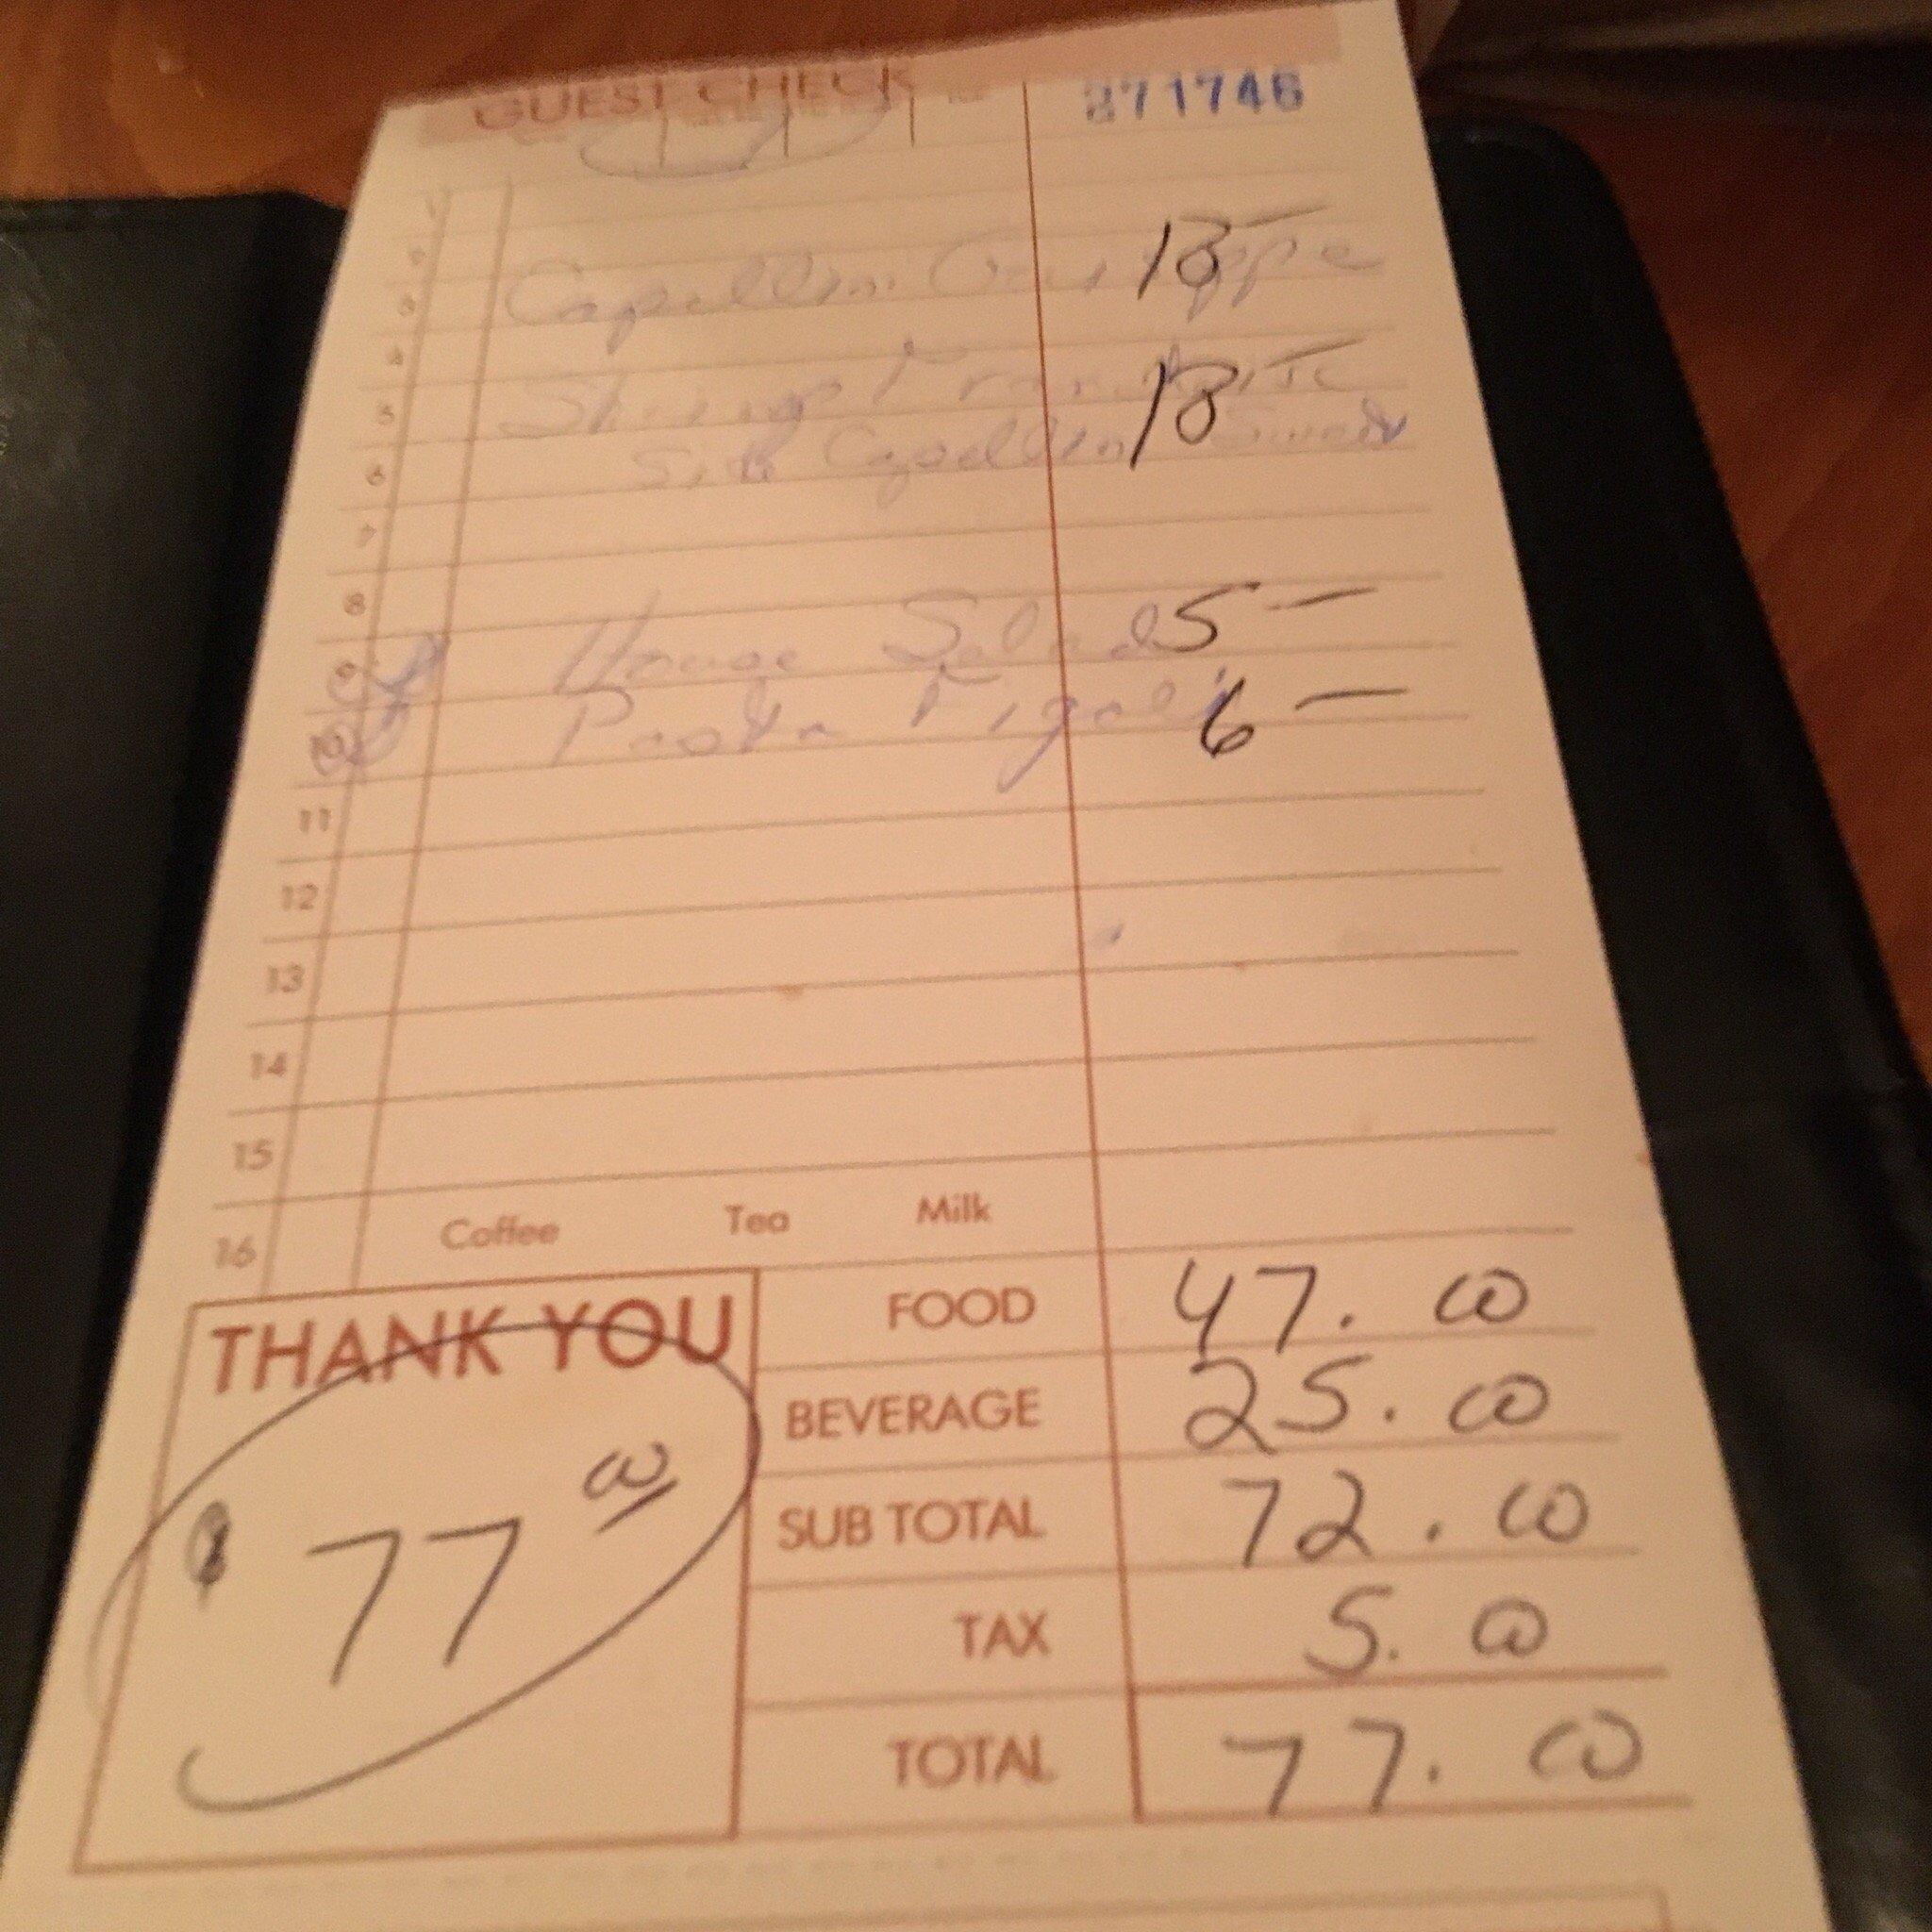 GUEST CHECK 371746
1
2
3 Capellini Giuseppe 18 —
4
5 Shrimp 18 —
6 Side Capellini
7
8
9 House Salad 5 —
10 Pasta Figoli 6 —
11
12
13
14
15
16 Coffee Tea Milk
THANK YOU
$ 77 00
FOOD 47.00
BEVERAGE 25.00
SUB TOTAL 72.00
TAX 5.00
TOTAL 77.00